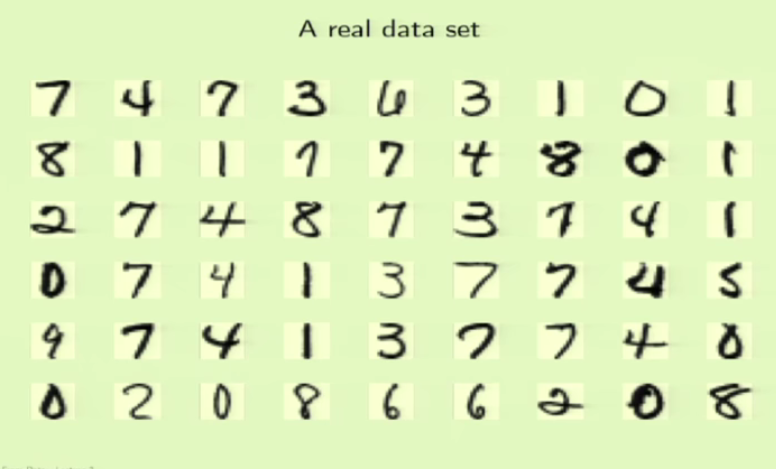 A real data set
7 4 7 3 6 3 1 0 1
8 1 1 1 7 4 8 0 1
2 7 4 8 7 3 7 4 1
0 7 4 1 3 7 7 4 5
9 7 4 1 3 7 7 4 0
0 2 0 8 6 6 2 0 8